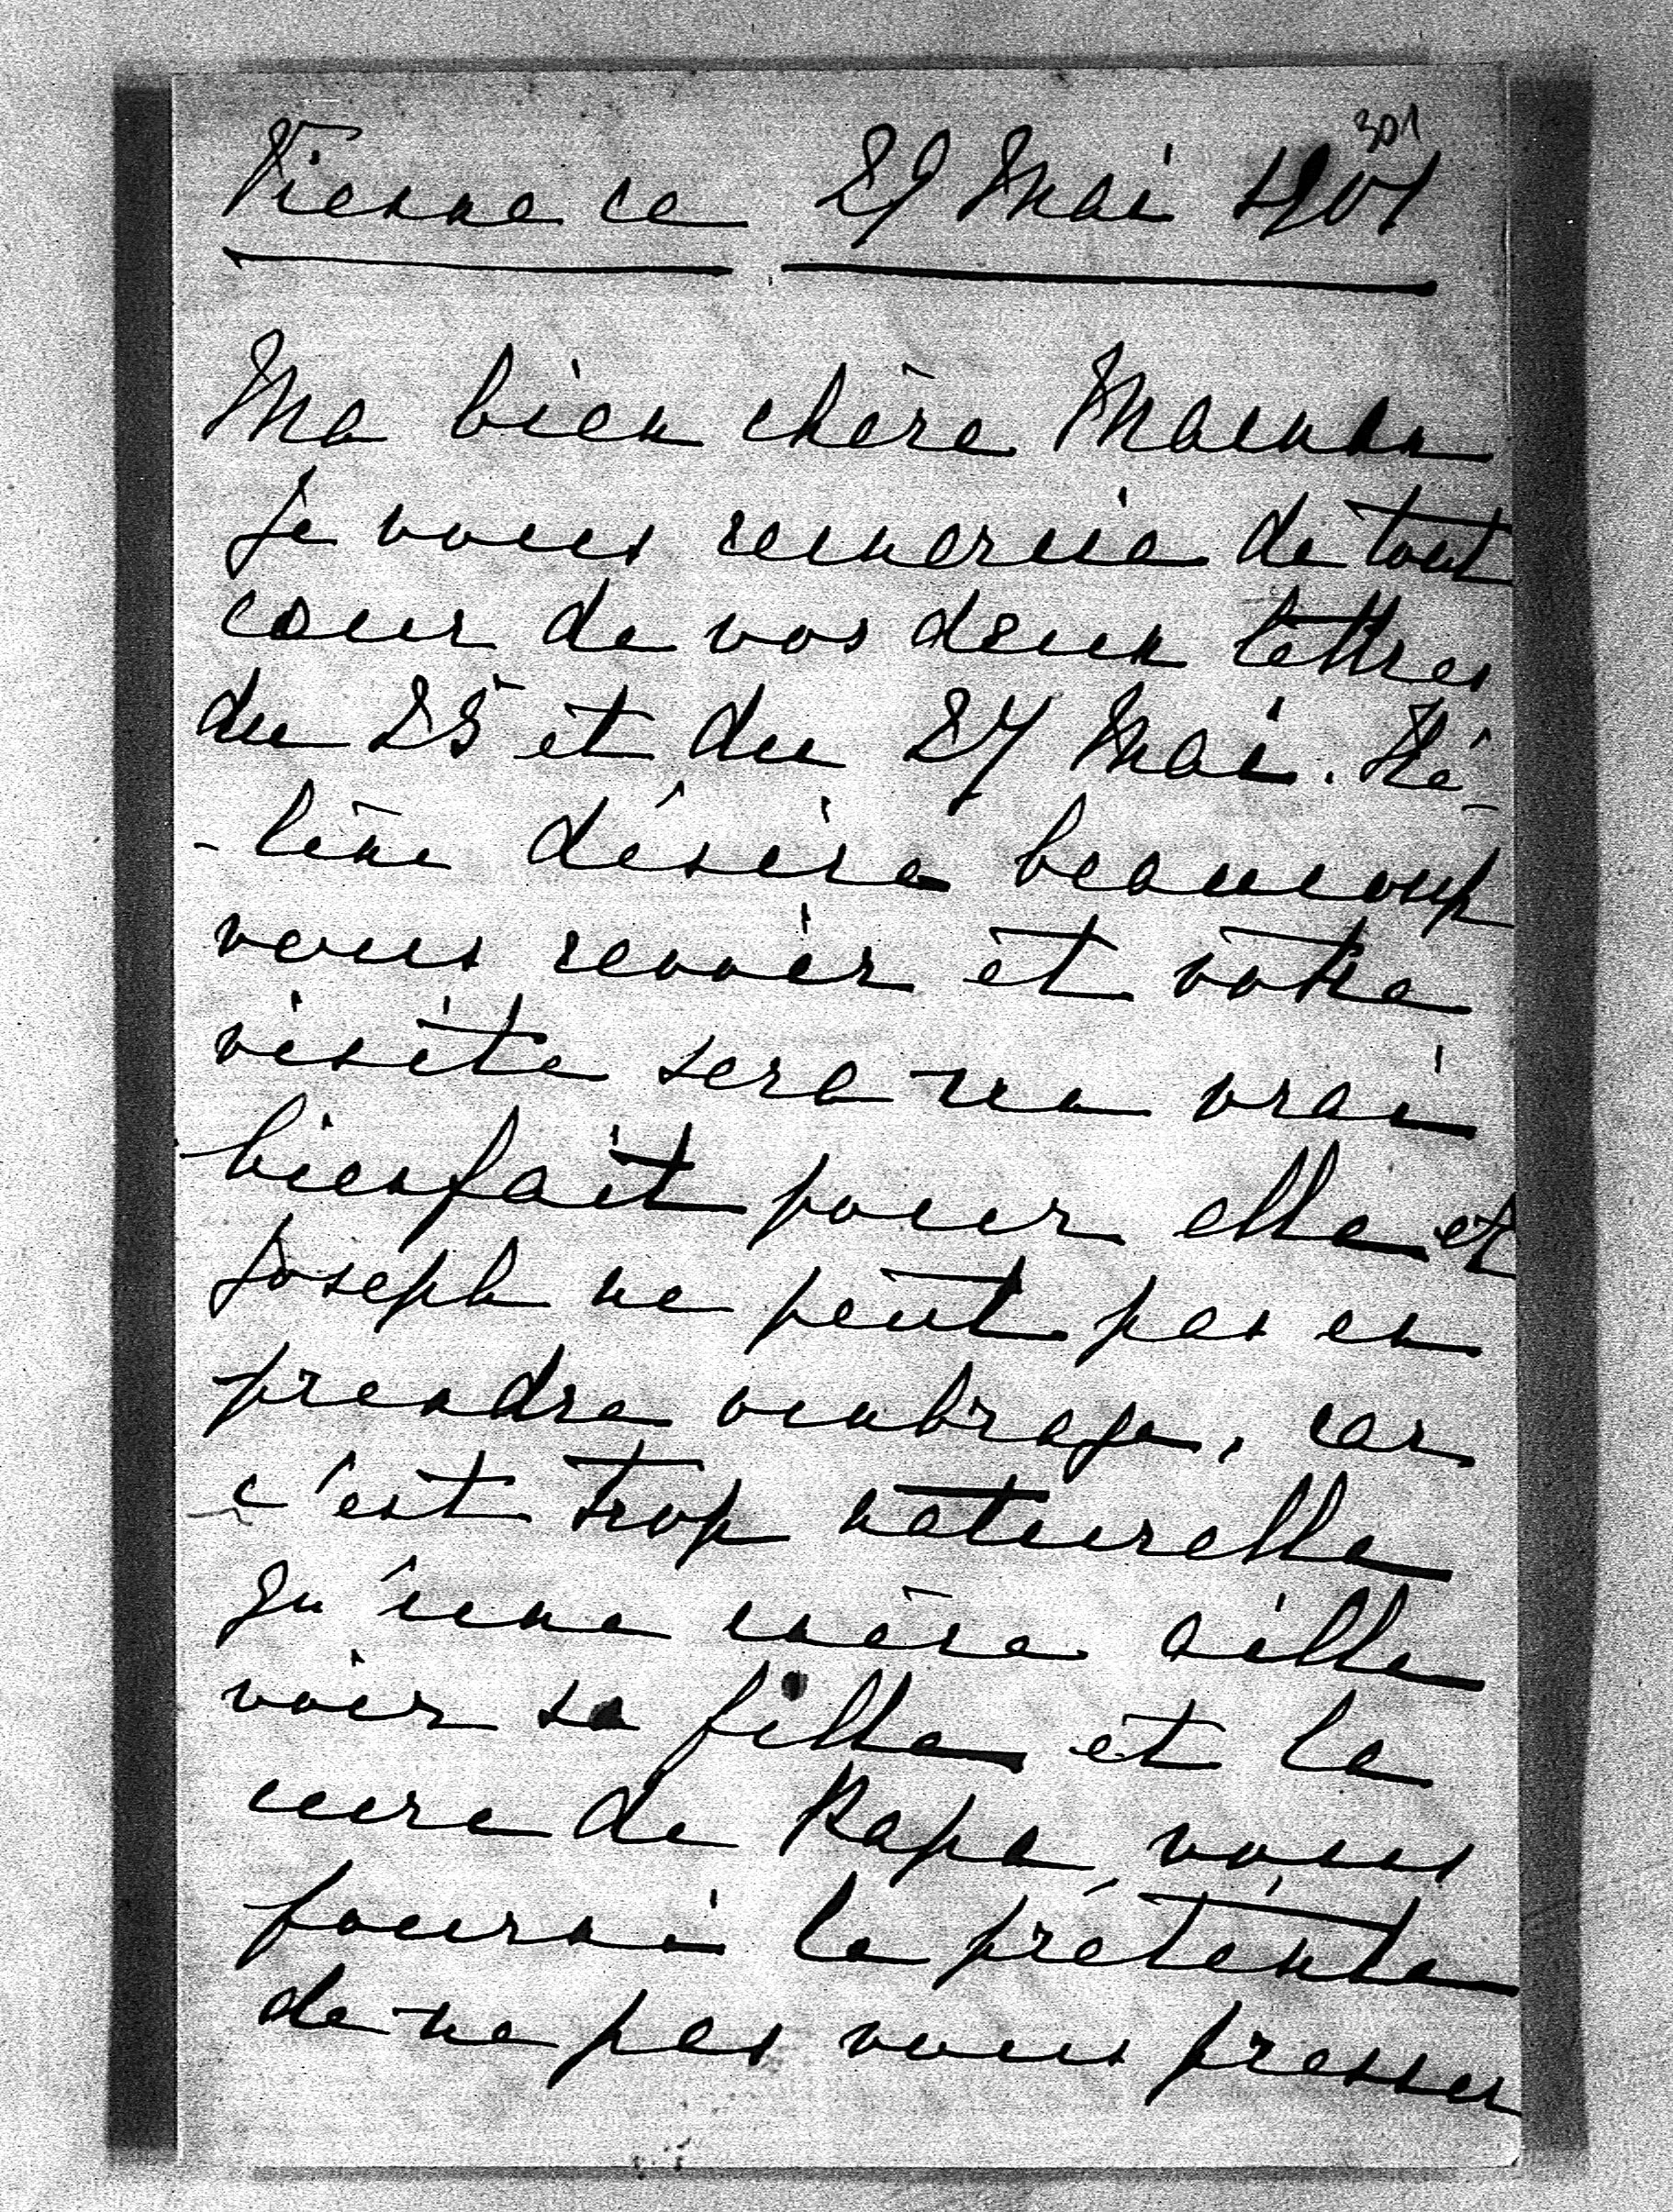 301
Vienne ce 29 Mai 1901
Ma bien chère Maman
Je vous remercie de tout
coeur de vos deux lettres
du 25 et du 27 Mai. Hé-
-lène désire beaucoup
vous revoir et votre
visite sera un vrai
bienfait pour elle et
Joseph ne peut pas en
prendre ombrage, car
c'est trop naturelle
qu'une mère aille
voir sa fille et la
cure de Papa vous
fourni le prétexte
de ne pas vous presser